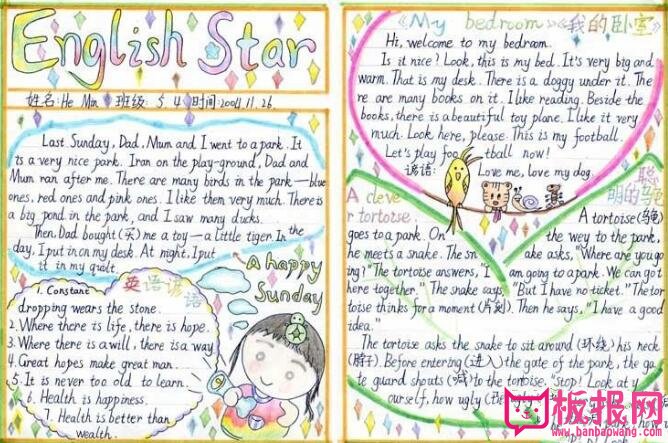 English Star
姓名:He Min 班级: 5 4 时间:2004.11.26.
Last Sunday, Dad, Mum and I went to a park. It
is a very nice park. I ran on the play-ground, Dad and
Mum ran after me. There are many birds in the park—blue
ones, red ones and pink ones. I like them very much. There is
a big pond in the park, and I saw many ducks.
Then, Dad bought(买) me a toy — a little tiger. In the
day, I put in on my desk. At night, I put
it in my quilt.
A happy
Sunday
英语谚语
1. Constant
dropping wears the stone.
2. Where there is life, there is hope.
3. Where there is a will, there is a way.
4. Great hopes make great man.
5. It is never too old to learn.
6. Health is happiness.
7. Health is better than
wealth.
《My bedroom》《我的卧室》
Hi, welcome to my bedroom.
Is it nice? Look, this is my bed. It's very big and
warm. That is my desk. There is a doggy under it. The
re are many books on it. I like reading. Beside the
books, there is a beautiful toy plane. I like it very
much. Look here, please. This is my football.
Let's play foo tball now!
谚语: Love me, love my dog.
A cleve
r tortoise.
聪
明的乌龟
A tortoise(乌龟)
goes to a park. On the wey to the park,
he meets a snake. The sn ake asks, "Where are you go
ing?" The tortoise answers, "I am going to a park. We can go t
here together." The snake says, "But I have no ticket." The tor
toise thinks for a moment (片刻). Then he says, "I have a good
idea."
The tortoise asks the snake to sit around (环绕) his neck
(脖子). Before entering (进入) the gate of the park, the ga
te guard shouts (喊) to the tortoise. "Stop! Look at y
ourself, how ugly
板报网
www.banbaowang.com